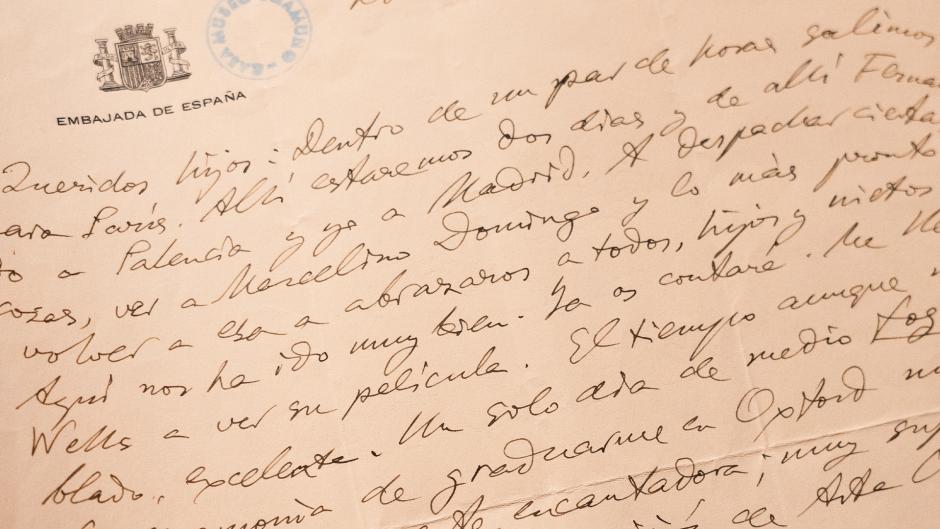 CASA MUSEO UNAMUNO
EMBAJADA DE ESPAÑA
Queridos hijos: Dentro de un par de horas salimos
para París. Allí estaremos dos dias y de allí Ferna
do a Palencia y yo a Madrid. A despachar cierta
cosas, ver a Marcelino Domingo y lo más pronto
volver a esa a abrazaros a todos, hijos y nietos
Aquí nos ha ido muy bien. Ya os contaré. Me lle
Wells a ver su película. El tiempo aunque
blado, excelente. Un solo dia de medio fog
monia de graduarme en Oxford
encantadora; muy
de Arte